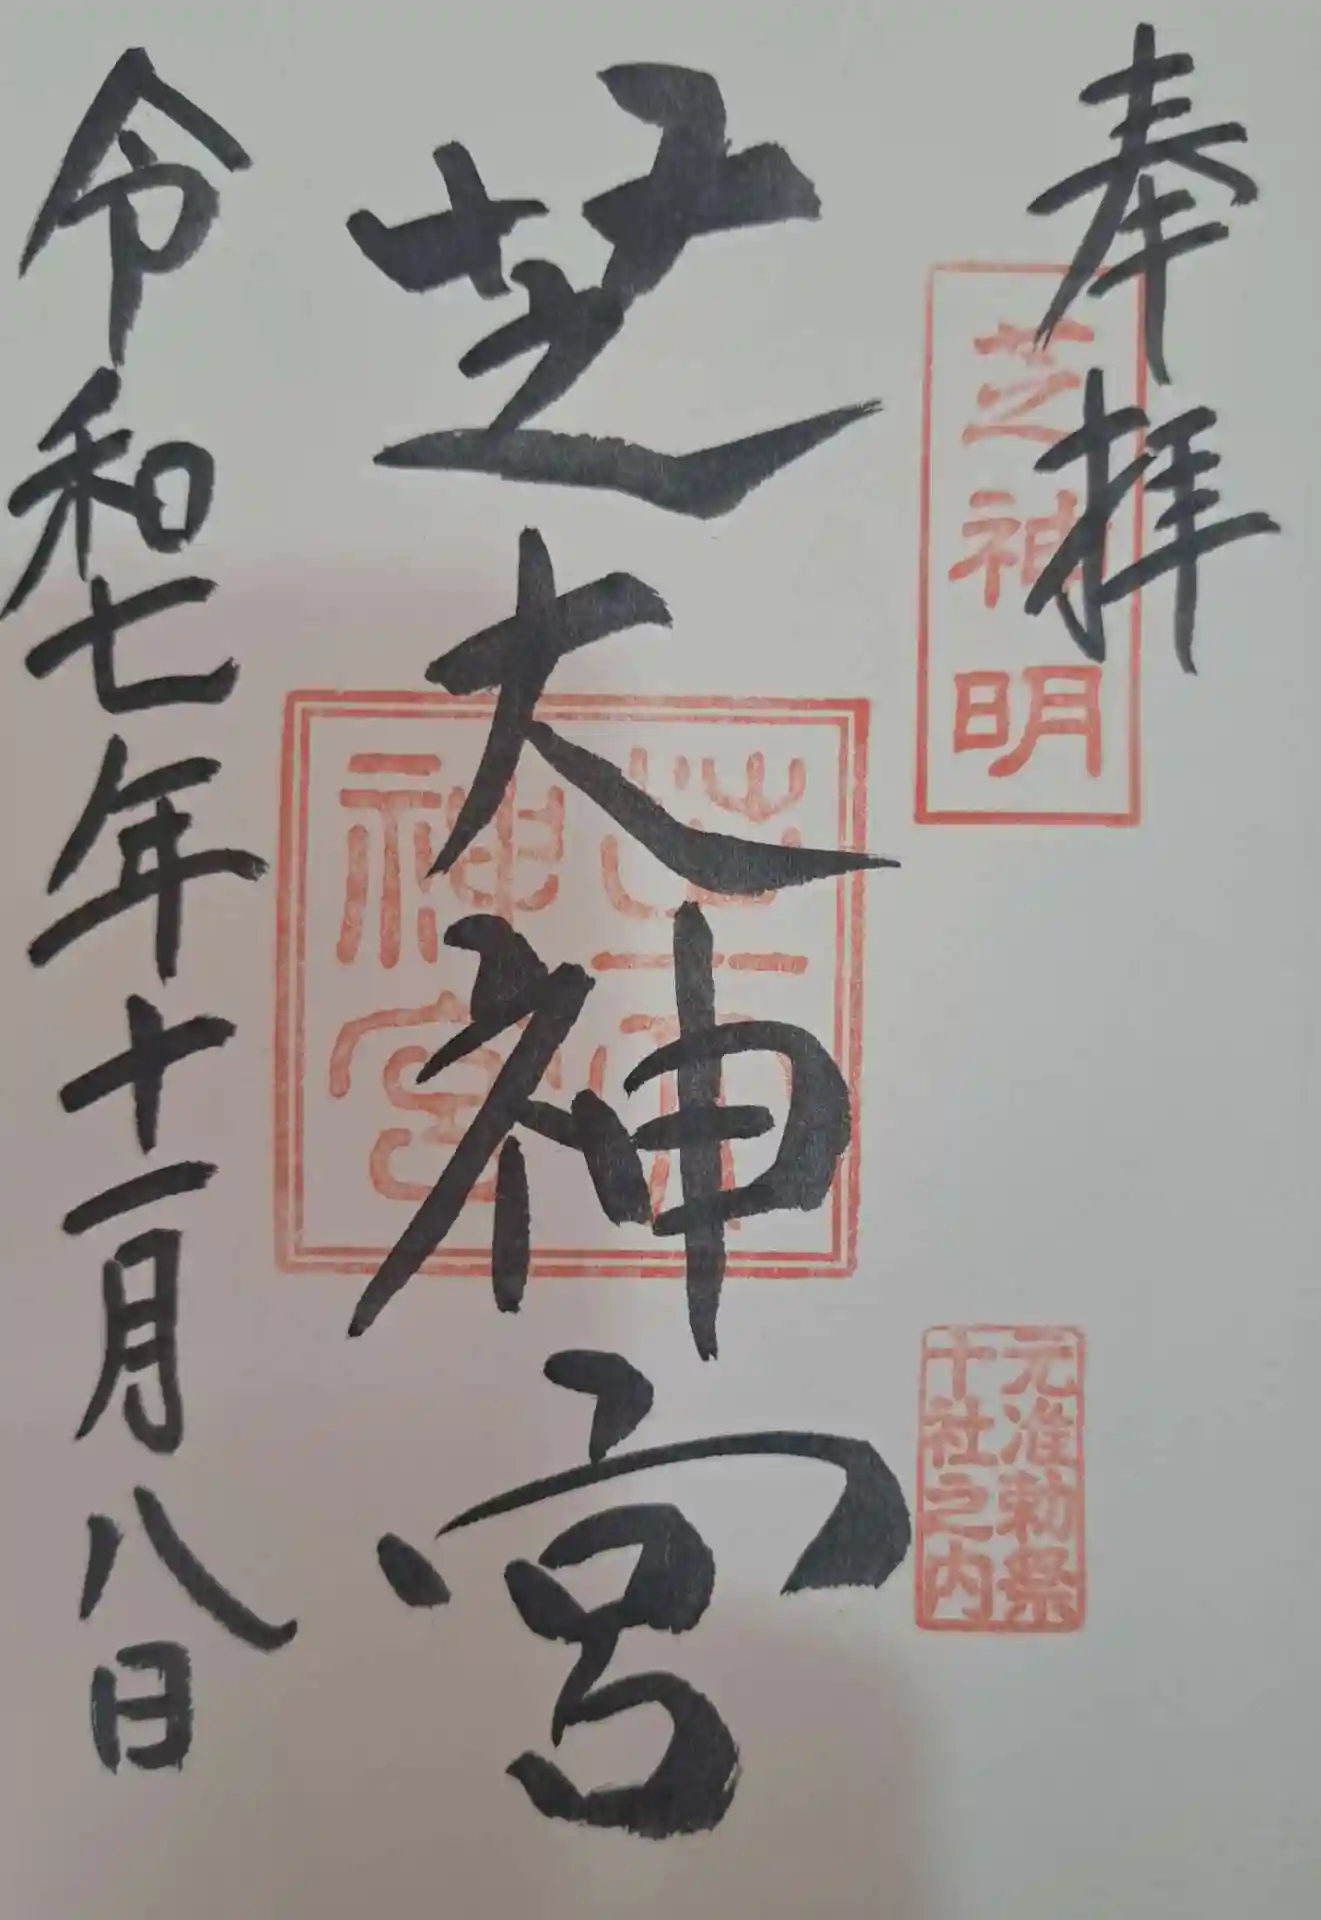 奉拝
芝神明
元准勅祭
十社之内
芝大神宮
芝大
神宮
令和七年十一月八日